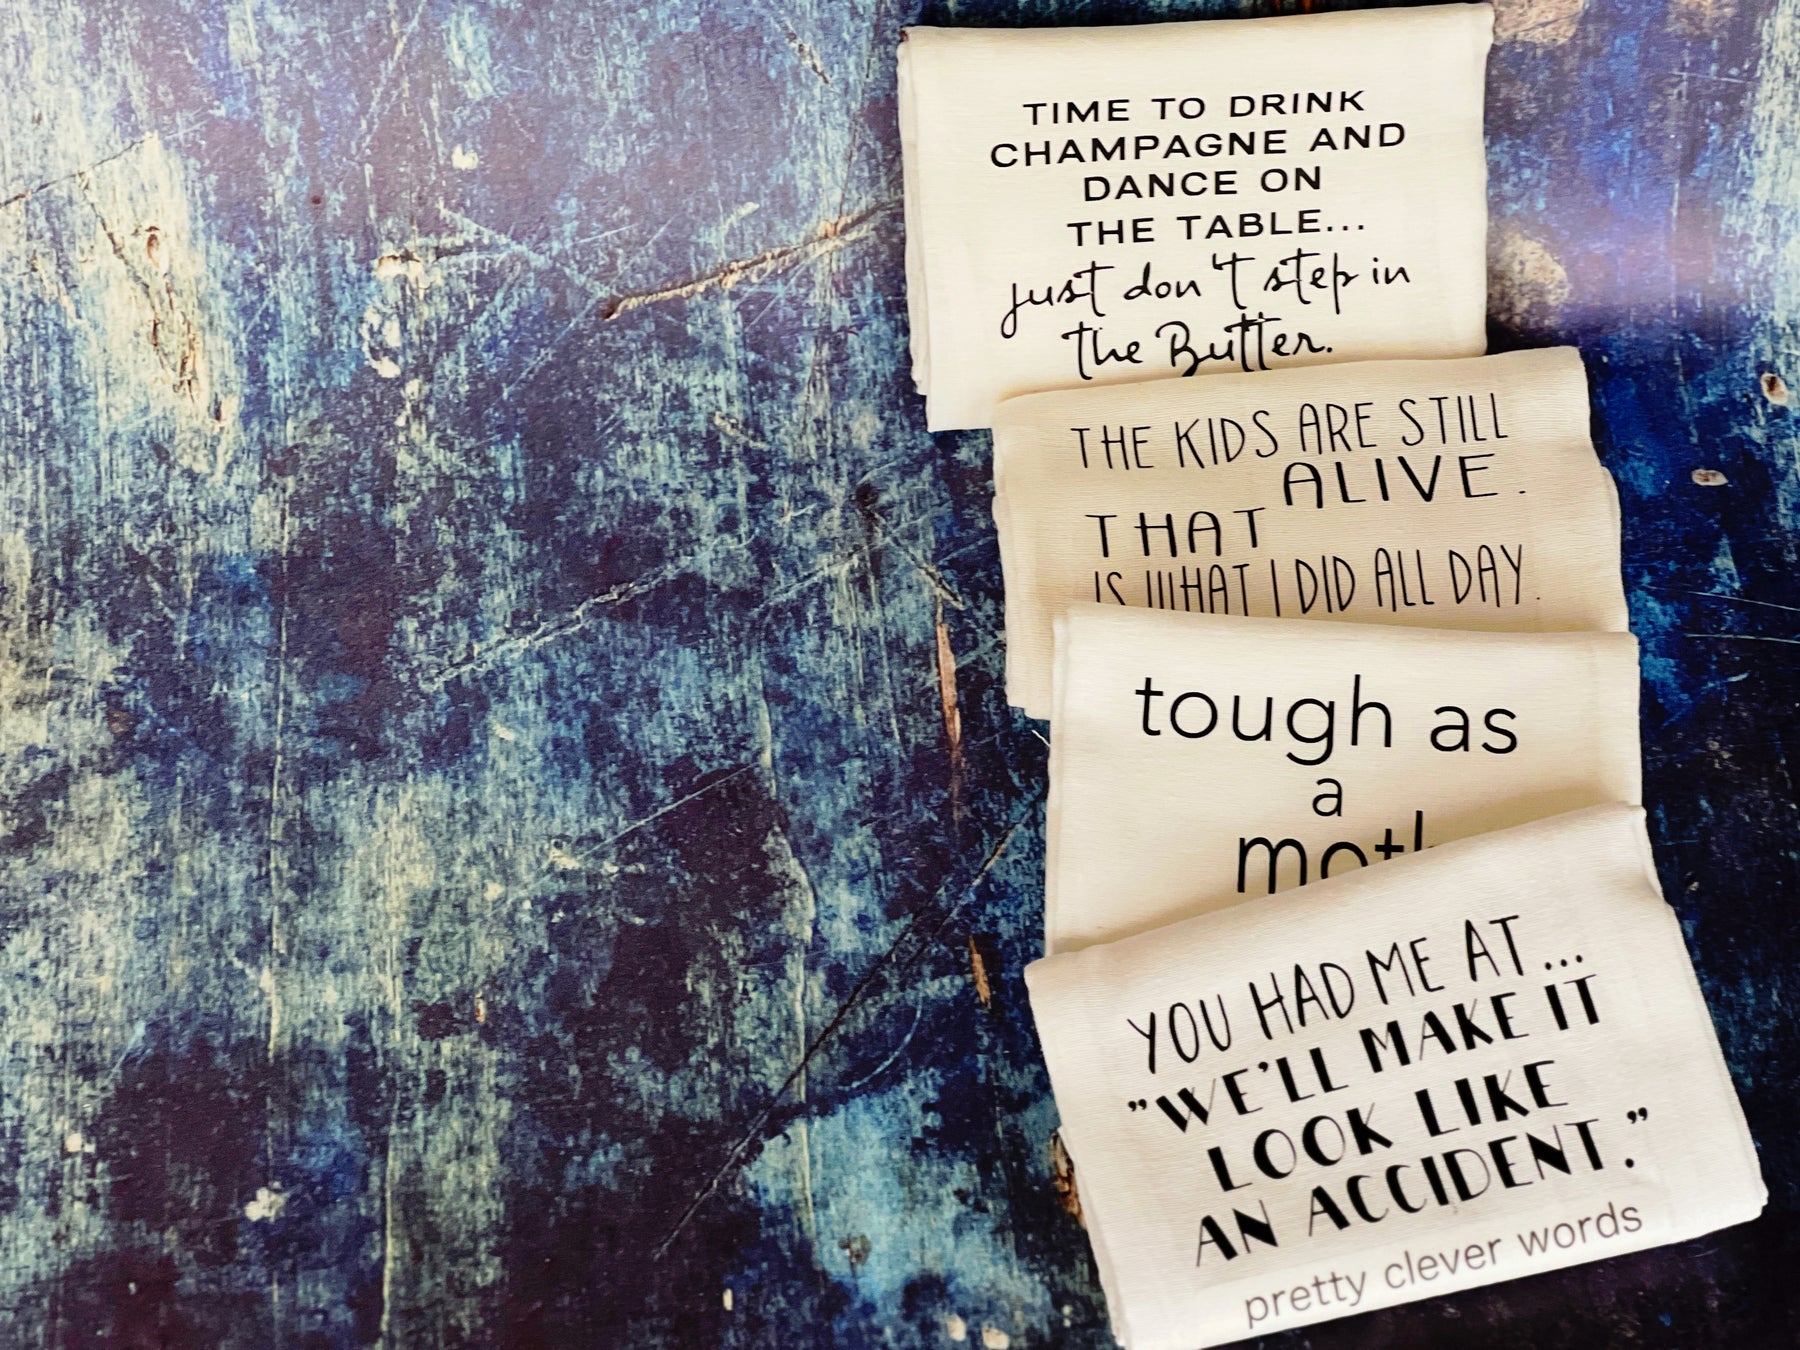 TIME TO DRINK
CHAMPAGNE AND
DANCE ON
THE TABLE...
just don't step in
the Butter.
THE KIDS ARE STILL
ALIVE.
THAT
IS WHAT I DID ALL DAY.
tough as
a
YOU HAD ME AT...
"WE'LL MAKE IT
LOOK LIKE
AN ACCIDENT."
pretty clever words